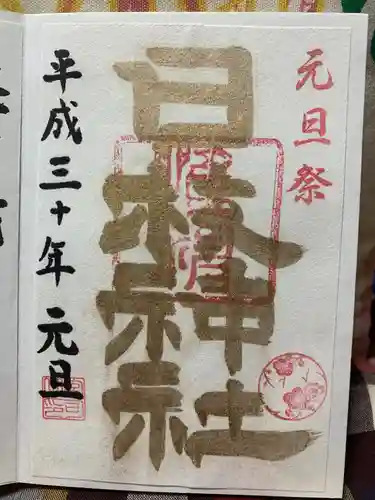 元旦祭
日枝神社
平成三十年 元旦